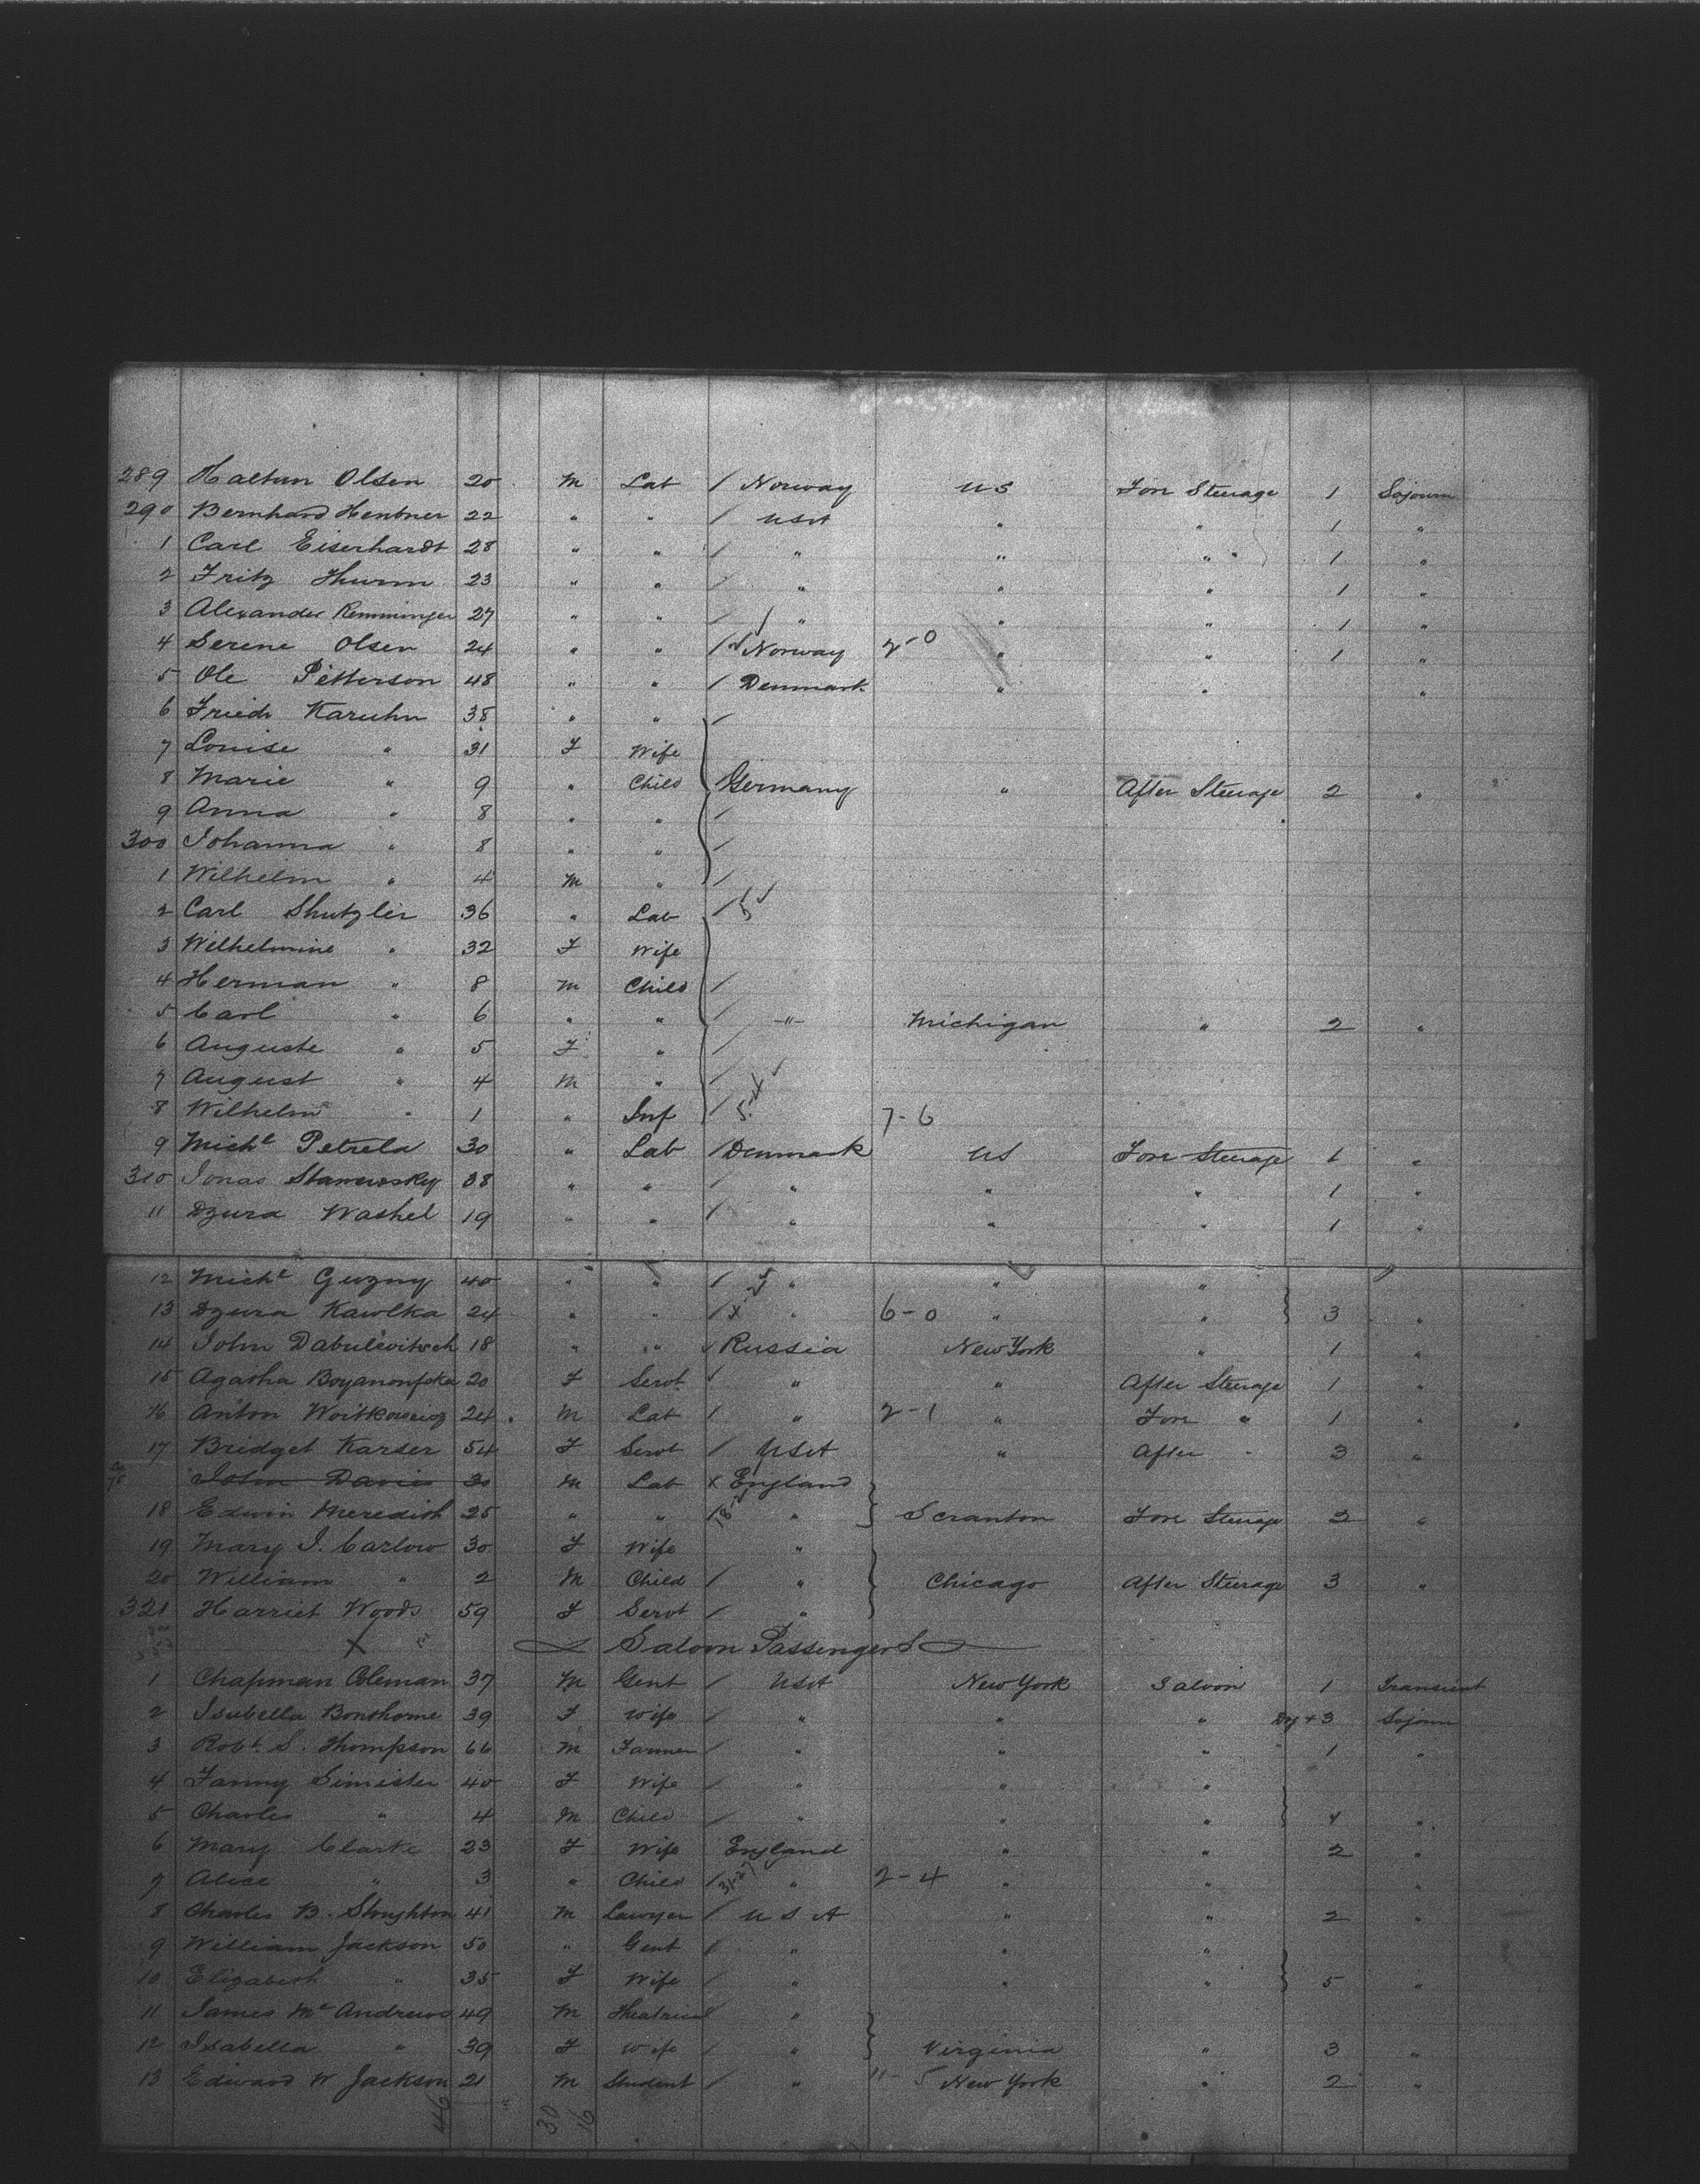 289 Haltun Olsen 20 M Lab / Norway US Fore Steerage 1 Sojourn
290 Bernhard Hentner 22 " " / USA " " 1 "
1 Carl Eiserhardt 28 " " / " " " 1 "
2 Fritz Thurm 23 " " / " " " 1 "
3 Alexander Remminger 27 " " / " " " 1 "
4 Serene Olsen 24 " " / Norway 2-0 " " 1 "
5 Ole Petterson 48 " " / Denmark " " "
6 Friedr Karuhn 38 " " /
7 Louise " 31 F Wife
8 Marie " 9 " Child Germany " After Steerage 2 "
9 Anna " 8 " " /
300 Johanna " 8 " " /
1 Wilhelm " 4 M " /
2 Carl Shutzler 36 " Lab / 5
3 Wilhelmine " 32 F Wife
4 Herman " 8 M Child /
5 Carl " 6 " " / -"- Michigan " 2 "
6 Auguste " 5 F " /
7 August " 4 M " /
8 Wilhelm " 1 " Inf / 5-4 7-6
9 Michl Petrela 30 " Lab / Denmark US Fore Steerage 1 "
310 Jonas Stanewsky 38 " " / " " " 1 "
11 Dzura Washel 19 " " / " " " 1 "
12 Michl Guzny 40 " " / " " "
13 Dzura Kawlka 24 " " / x " 6-0 " " 3 "
14 John Dabulevitsch 18 " " Russia New York " 1 "
15 Agasha 20 F Servt " " After Steerage 1 "
16 Anton Woitkoweicz 24 M Lab / " 2-1 " Fore " 1 "
17 Bridget Karser 54 F Servt / USA " After " 3 "
John Davis 30 M Lab x England
18 Edwin Meredith 25 " " / " Scranton Fore Steerage 2 "
19 Mary J. Carlow 30 F Wife "
20 William " 2 M Child / " Chicago After Steerage 3 "
321 Harriet Woods 59 F Servt / "
X Saloon Passengers
1 Chapman Coleman 37 M Gent / USA New York Saloon 1 Transient
2 Isabella Bonthorne 39 F Wife / " " " 3 Sojourn
3 Robt. S. Thompson 66 M Farmer / " " " 1 "
4 Fanny Simister 40 F Wife / " " "
5 Charles " 4 M Child / " " " 4 "
6 Mary Clarke 23 F Wife England " " 2 "
7 Alice " 3 " Child / " 2-4 " " "
8 Charles B. Stoughton 41 M Lawyer / U S A " " 2 "
9 William Jackson 50 " Gent / " " "
10 Elizabeth " 35 F Wife / " " " 5 "
11 James McAndrews 49 M Theatrical "
12 Isabella " 39 F Wife / " Virginia " 3 "
13 Edward W Jackson 21 M Student / " 11-5 New York " 2 "
46 30 16